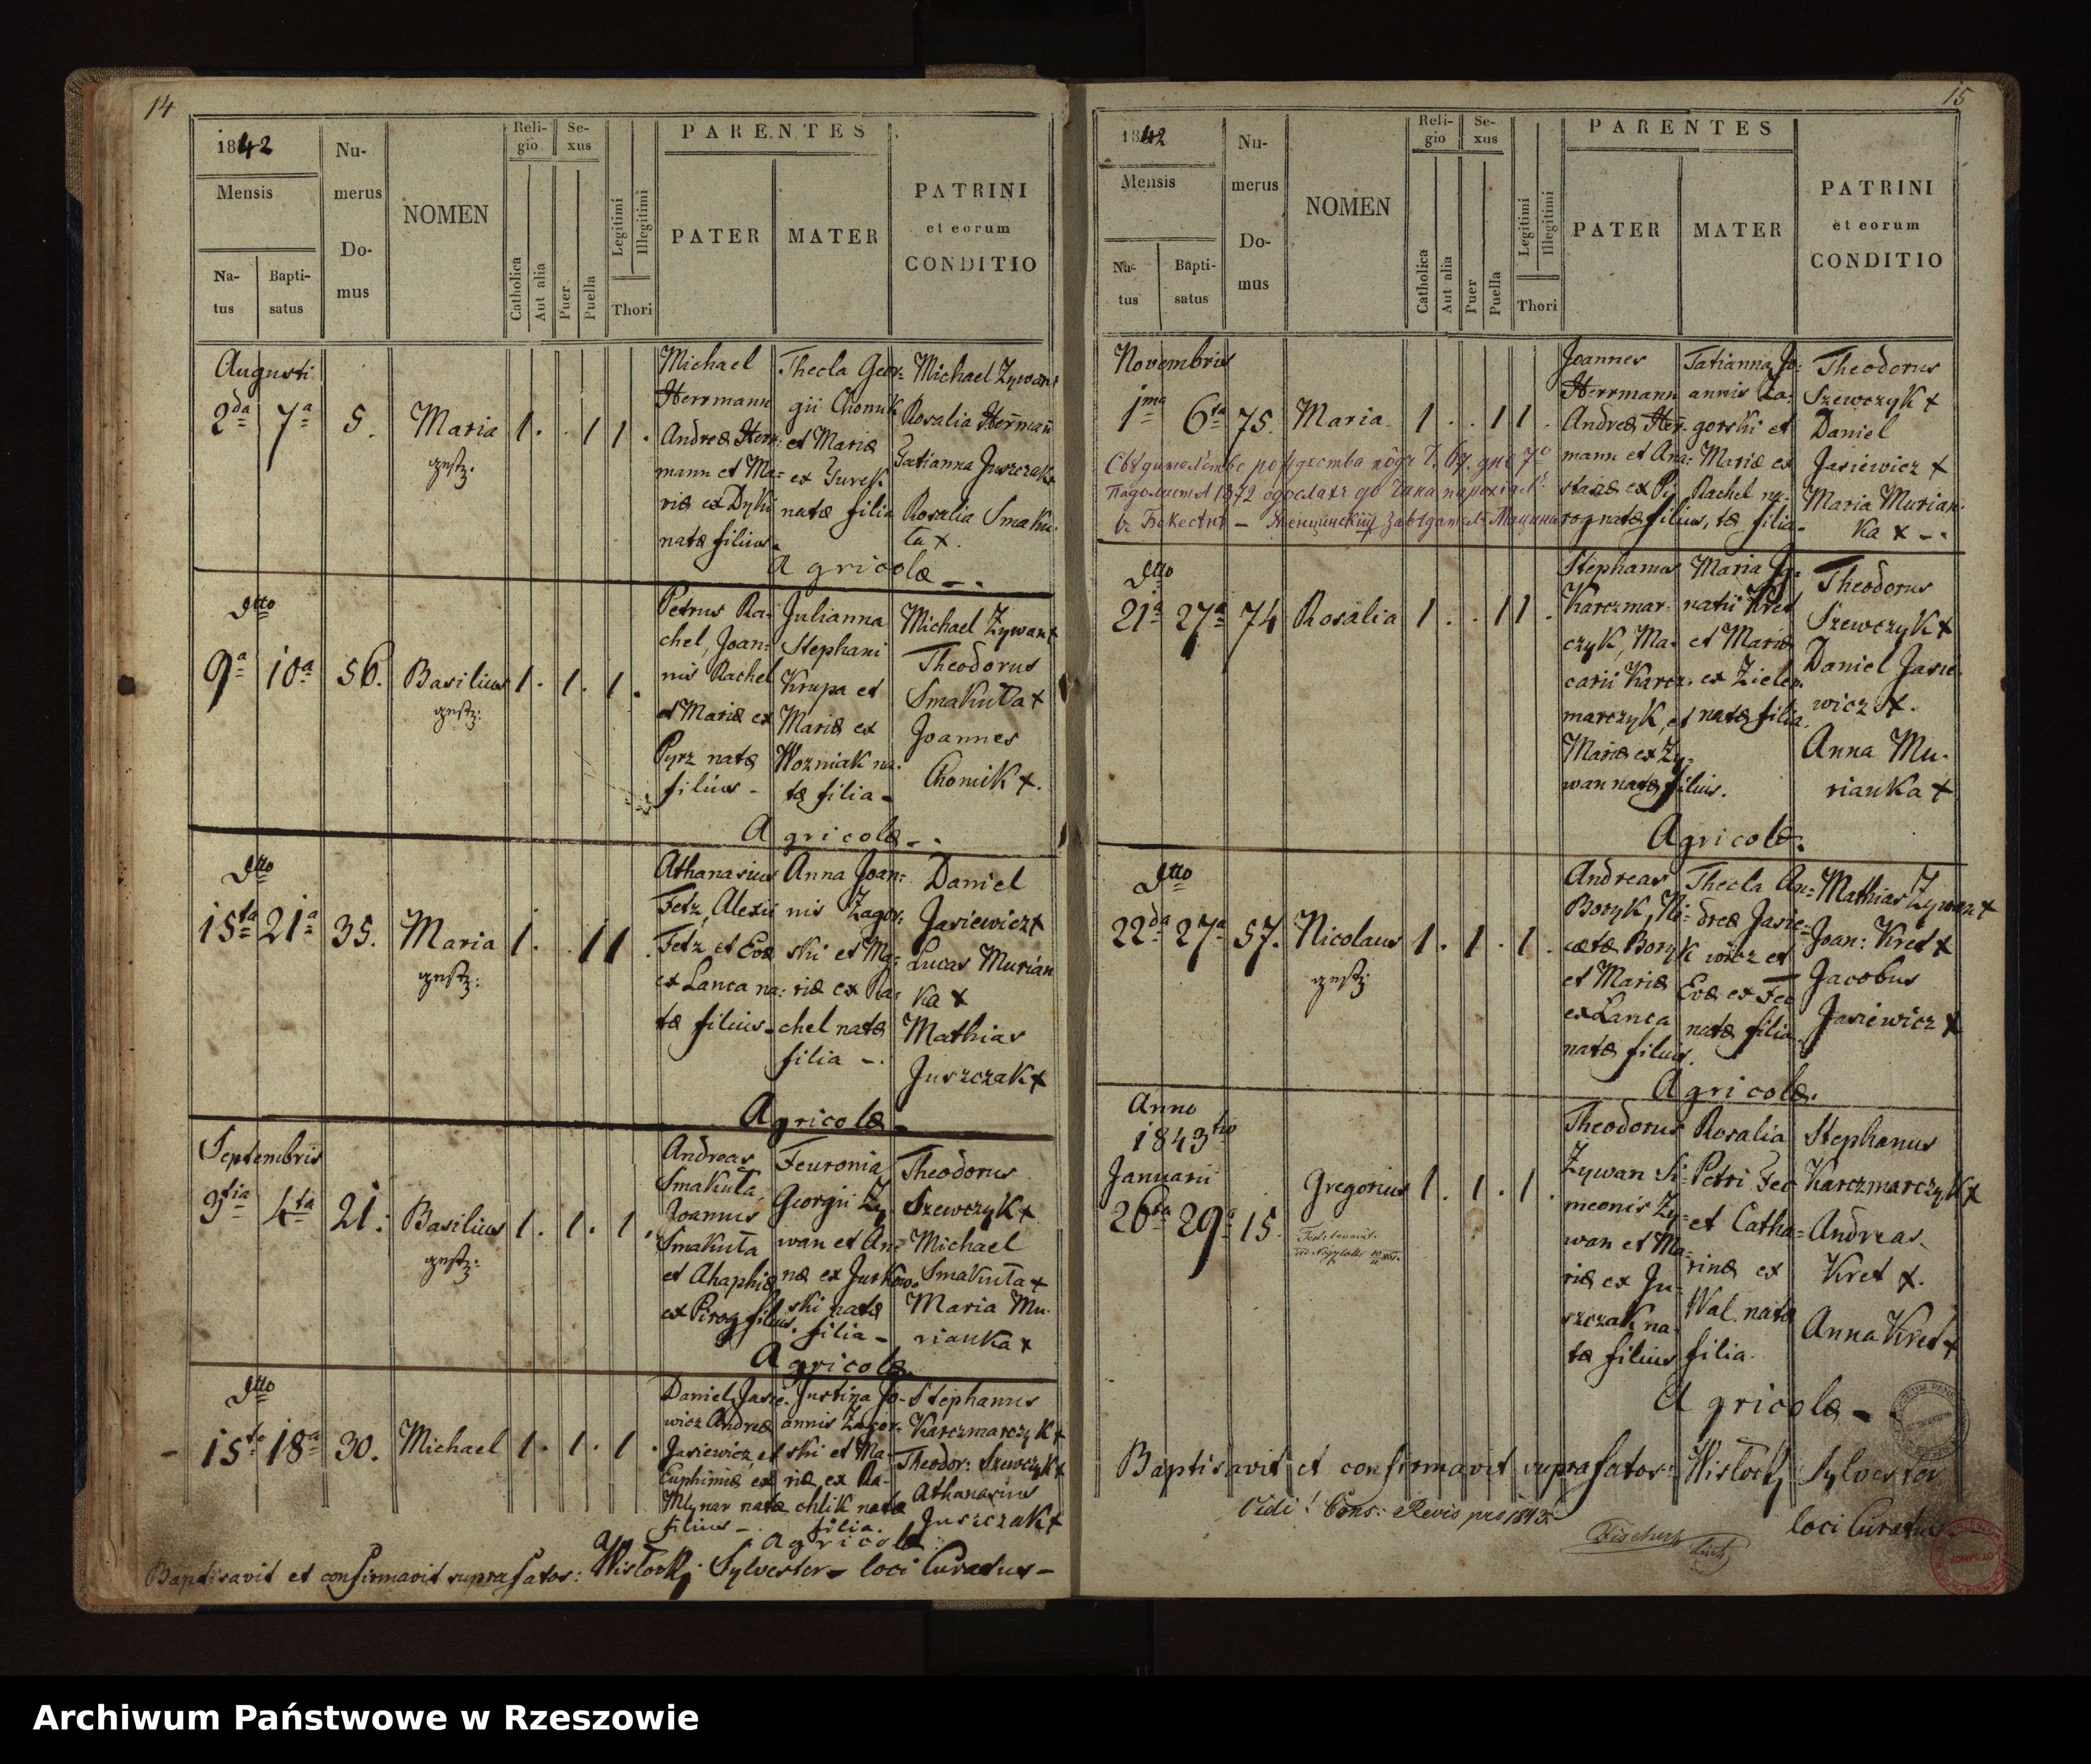 14
1842
Mensis
Na-
tus
Bapti-
satus
Nu-
merus
Do-
mus
NOMEN
Reli-
gio
Catholica
Aut alia
Se-
xus
Puer
Puella
Legitimi
Illegitimi
Thori
PARENTES
PATER
MATER
PATRINI
et eorum
CONDITIO
Augusti
2da 7a 5. Maria 1 . . 1 1 .
Michael
Herrmann
Andreæ Herr:
mann et Ma:
riæ ex Dyki
natæ filius.
Thecla Geor:
gii Chomik
et Mariæ
ex Jurek
natæ filia
Michael Zywan+
Rosalia Herman
Tatianna Juszczak
Rosalia Smaku:
ta x.
Agricolæ
dtto
9a 10a 56. Basilius 1 . 1 . 1 .
Petrus Ra:
chel, Joan:
nis Rachel
et Mariæ ex
Pyrz natæ
filius -
Julianna
Stephani
Krupa et
Mariæ ex
Wozniak na:
tæ filia -
Michael Zywan+
Theodorus
Smakuła +
Joannes
Chomik +.
Agricolæ
dtto
15ta 21a 35. Maria 1 . . 1 1 .
Athanasius
Fetz, Alexii
Fetz et Evæ
ex Lanca na:
tæ filius -
Anna Joan:
nis Zagor:
ski et Ma:
riæ ex Ra:
chel natæ
filia -.
Daniel
Jasiewicz +
Lucas Murian
ka +
Mathias
Juszczak +
Agricolæ
Septembris
3tia 4ta 21. Basilius 1 . 1 . 1 .
Andreas
Smakuła,
Joannis
Smakuła
et Ahaphiæ
ex Pirog filius.
Feuronia
Georgii Zy
wan et An:
næ ex Jurkow:
ski natæ
filia -
Theodorus
Szewczyk +
Michael
Smakuła +
Maria Mu:
rianka +
Agricolæ
dtto
15ta 18a 30. Michael 1 . 1 . 1 .
Daniel Jasie:
wicz Andreæ
Jasiewicz et
Euphimiæ ex
Mlynar natæ
filius -.
Justina Jo-
annis Zagor:
ski et Ma-
riæ ex Ra-
chlik natæ
filia.
Stephanus
Karczmarczyk +
Theodor: Szewczyk +
Athanasius
Juszczak +
Agricolæ
Baptisavit et confirmavit suprafatos: Wisłocki Sylvester - loci Curatus -
15
1842
Mensis
Na-
tus
Bapti-
satus
Nu-
merus
Do-
mus
NOMEN
Reli-
gio
Catholica
Aut alia
Se-
xus
Puer
Puella
Legitimi
Illegitimi
Thori
PARENTES
PATER
MATER
PATRINI
et eorum
CONDITIO
Novembris
1ma 6ta 75. Maria 1 . . 1 1 .
Joannes
Herrmann
Andreæ Her:
mann et Ana:
staziæ ex Pi
rog natæ filius,
Tatianna Jo:
annis Za:
gorski et
Mariæ ex
Rachel na:
tæ filia -
Theodorus
Szewczyk +
Daniel
Jasiewicz +
Maria Murian
ka x -.
dtto
21a 27a 74 Rosalia 1 . . 1 1 .
Stephanus
Karczmar:
czyk, Ma:
carii Karcz:
marczyk, et
Mariæ ex Zy:
wan natæ filius.
Maria Ig:
natii Kret
et Mariæ
natæ filia.
Theodorus
Szewczyk +
Daniel Jasie
wicz +.
Anna Mu:
rianka +
Agricolæ
dtto
22da 27a 57. Nicolaus 1 . 1 . 1 .
Andreas
Boryk, Ni:
cetæ Boryk
et Mariæ
ex Lanca
natæ filius.
Thecla An:
dreæ Jasie:
wicz et
Evæ ex Fec
natæ filia.
Mathias Zywan +
Joan: Kret +
Jacobus
Jasiewicz +
Agricolæ.
Anno
1843tio
Januarii
26ta 29a 15. Gregorius 1 . 1 . 1 .
Theodorus
Zywan Si:
meonis Zy:
wan et Ma:
riæ ex Ju:
szczak na:
tæ filius
Rosalia
Petri Fec
et Catha:
rinæ ex
Wal. natæ
filia.
Stephanus
Karczmarczyk +
Andreas
Kret +.
Anna Kret +
Agricolæ -.
Baptisavit et confirmavit suprafatos: Wisłocki Sylvester
loci Curatus -
Vidi! Cons: Revis pro 1843.
Archiwum Państwowe w Rzeszowie